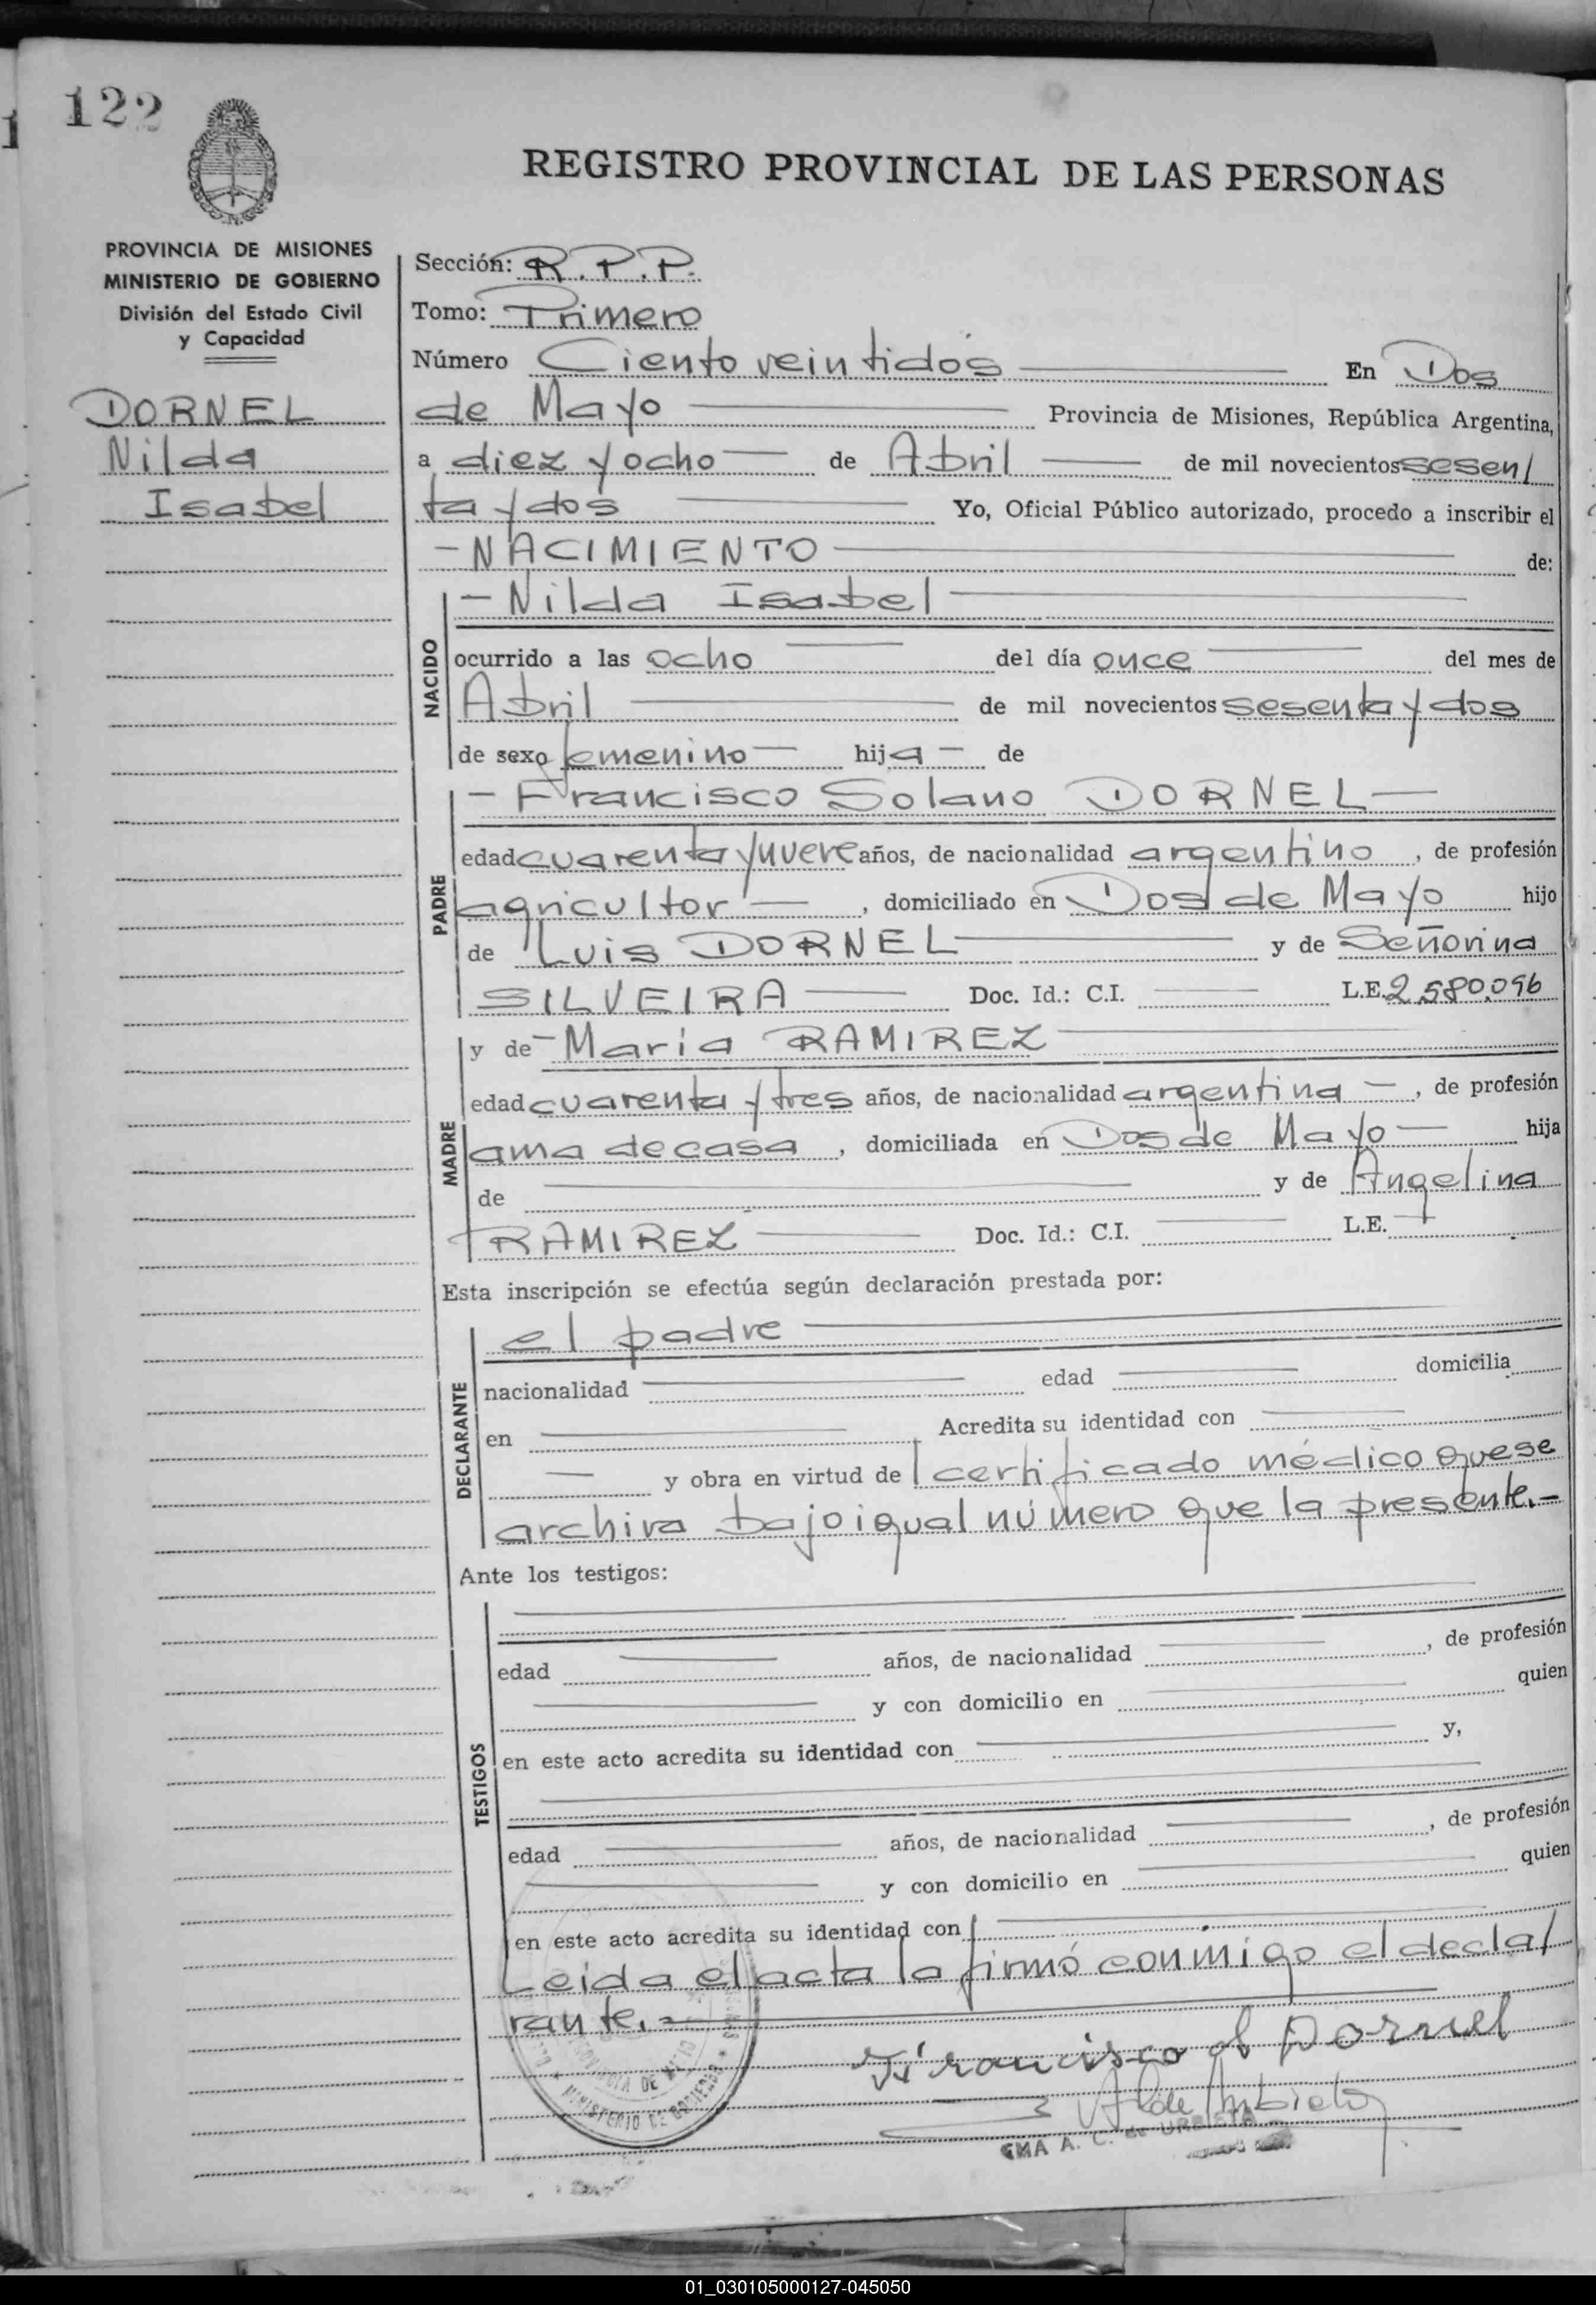 122
REGISTRO PROVINCIAL DE LAS PERSONAS
PROVINCIA DE MISIONES
MINISTERIO DE GOBIERNO
División del Estado Civil
y Capacidad
DORNEL
Nilda
Isabel
Sección: R.P.P.
Tomo: Primero
Número Ciento veintidós En Dos
de Mayo Provincia de Misiones, República Argentina,
a diez y ocho de Abril de mil novecientos sesen/
ta y dos Yo, Oficial Público autorizado, procedo a inscribir el
- NACIMIENTO de:
NACIDO
- Nilda Isabel
ocurrido a las ocho del día once del mes de
Abril de mil novecientos sesenta y dos
de sexo femenino hija de
PADRE
- Francisco Solano DORNEL
edad cuarenta y nueve años, de nacionalidad argentino, de profesión
agricultor, domiciliado en Dos de Mayo hijo
de Luis DORNEL y de Señorina
SILVEIRA Doc. Id.: C.I. L.E. 2.580.096
MADRE
y de - María RAMIREZ
edad cuarenta y tres años, de nacionalidad argentina, de profesión
ama de casa, domiciliada en Dos de Mayo hija
de y de Angelina
RAMIREZ Doc. Id.: C.I. L.E.
Esta inscripción se efectúa según declaración prestada por:
DECLARANTE
el padre
nacionalidad edad domicilia
en Acredita su identidad con
y obra en virtud de certificado médico que se
archiva bajo igual número que la presente.-
Ante los testigos:
TESTIGOS
edad años, de nacionalidad , de profesión
y con domicilio en quien
en este acto acredita su identidad con y,
edad años, de nacionalidad , de profesión
y con domicilio en quien
en este acto acredita su identidad con
Leida el acta la firmó conmigo el decla/
rante.=
Francisco S Dornel
MINISTERIO DE GOBIERNO
EMA A. C. de URBIETA
01_030105000127-045050